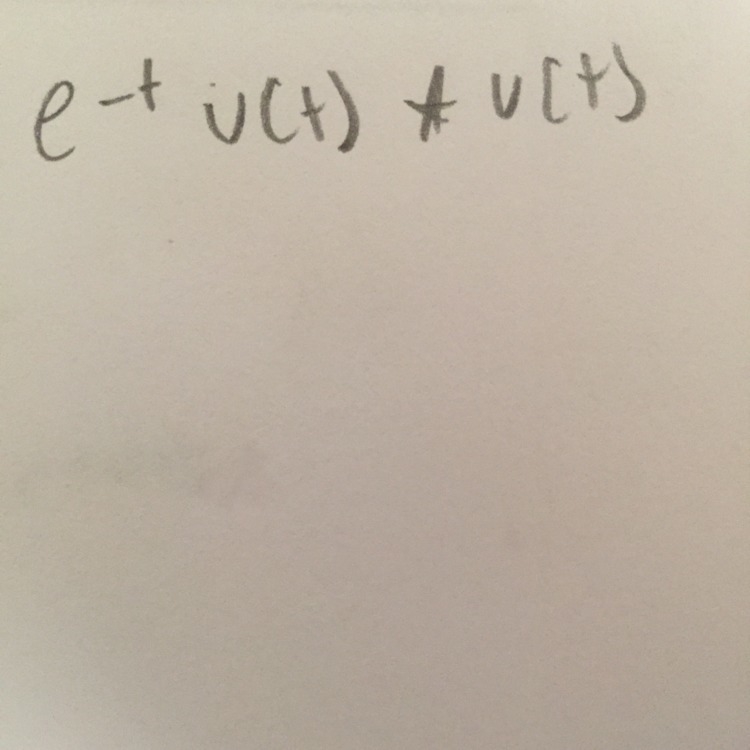 e^{-t} u(t) * u(t)